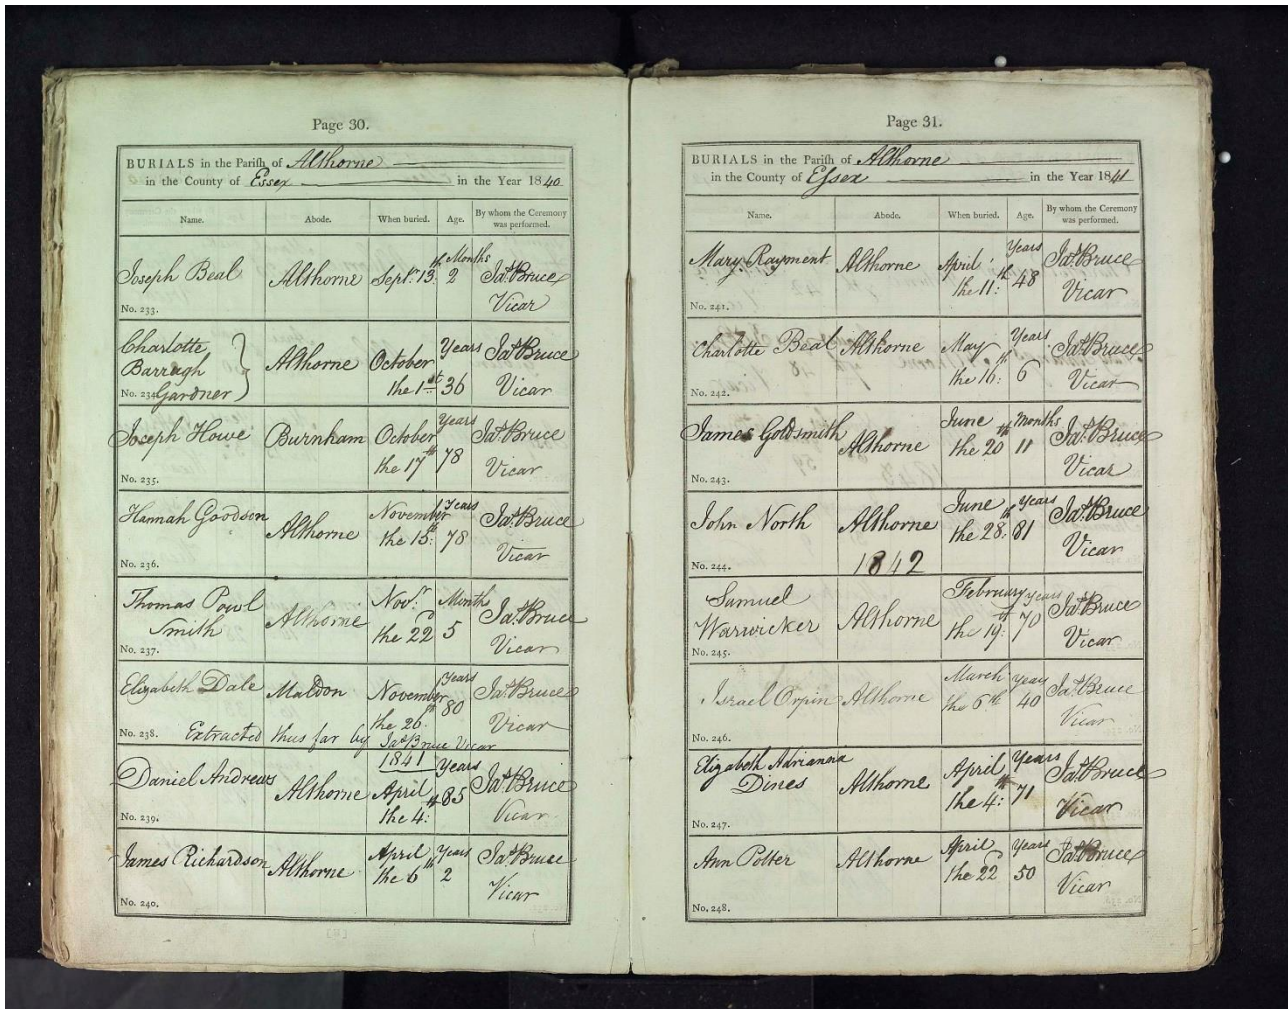 Page 30.
BURIALS in the Parish of Althorne
in the County of Essex in the Year 1840
Name. Abode. When buried. Age. By whom the Ceremony was performed.
Joseph Beal Althorne Septr. 13th 2 Months Jas. Bruce Vicar
No. 233.
Charlotte Barragh Gardner Althorne October the 1st Years 36 Jas. Bruce Vicar
No. 234.
Joseph Howe Burnham October the 17th Years 78 Jas. Bruce Vicar
No. 235.
Hannah Goodson Althorne November the 15th Years 78 Jas. Bruce Vicar
No. 236.
Thomas Powl Smith Althorne Novr. the 22d Month 5 Jas. Bruce Vicar
No. 237.
Elizabeth Dale Maldon November the 26th Years 80 Jas. Bruce Vicar
No. 238. Extracted thus far by Jas. Bruce Vicar
1841
Daniel Andrews Althorne April the 4th Years 85 Jas. Bruce Vicar
No. 239.
James Richardson Althorne April the 6th Years 2 Jas. Bruce Vicar
No. 240.
Page 31.
BURIALS in the Parish of Althorne
in the County of Essex in the Year 1841
Name. Abode. When buried. Age. By whom the Ceremony was performed.
Mary Rayment Althorne April the 11th Years 48 Jas. Bruce Vicar
No. 241.
Charlotte Beal Althorne May the 16th Years 6 Jas. Bruce Vicar
No. 242.
James Goldsmith Althorne June the 20th Months 11 Jas. Bruce Vicar
No. 243.
John North Althorne June the 28th Years 81 Jas. Bruce Vicar
No. 244.
1842
Samuel Warwicker Althorne February the 19th Years 70 Jas. Bruce Vicar
No. 245.
Israel Orpin Althorne March the 6th Years 40 Jas. Bruce Vicar
No. 246.
Elizabeth Adrianna Dines Althorne April the 4th Years 71 Jas. Bruce Vicar
No. 247.
Ann Potter Althorne April the 22d Years 50 Jas. Bruce Vicar
No. 248.